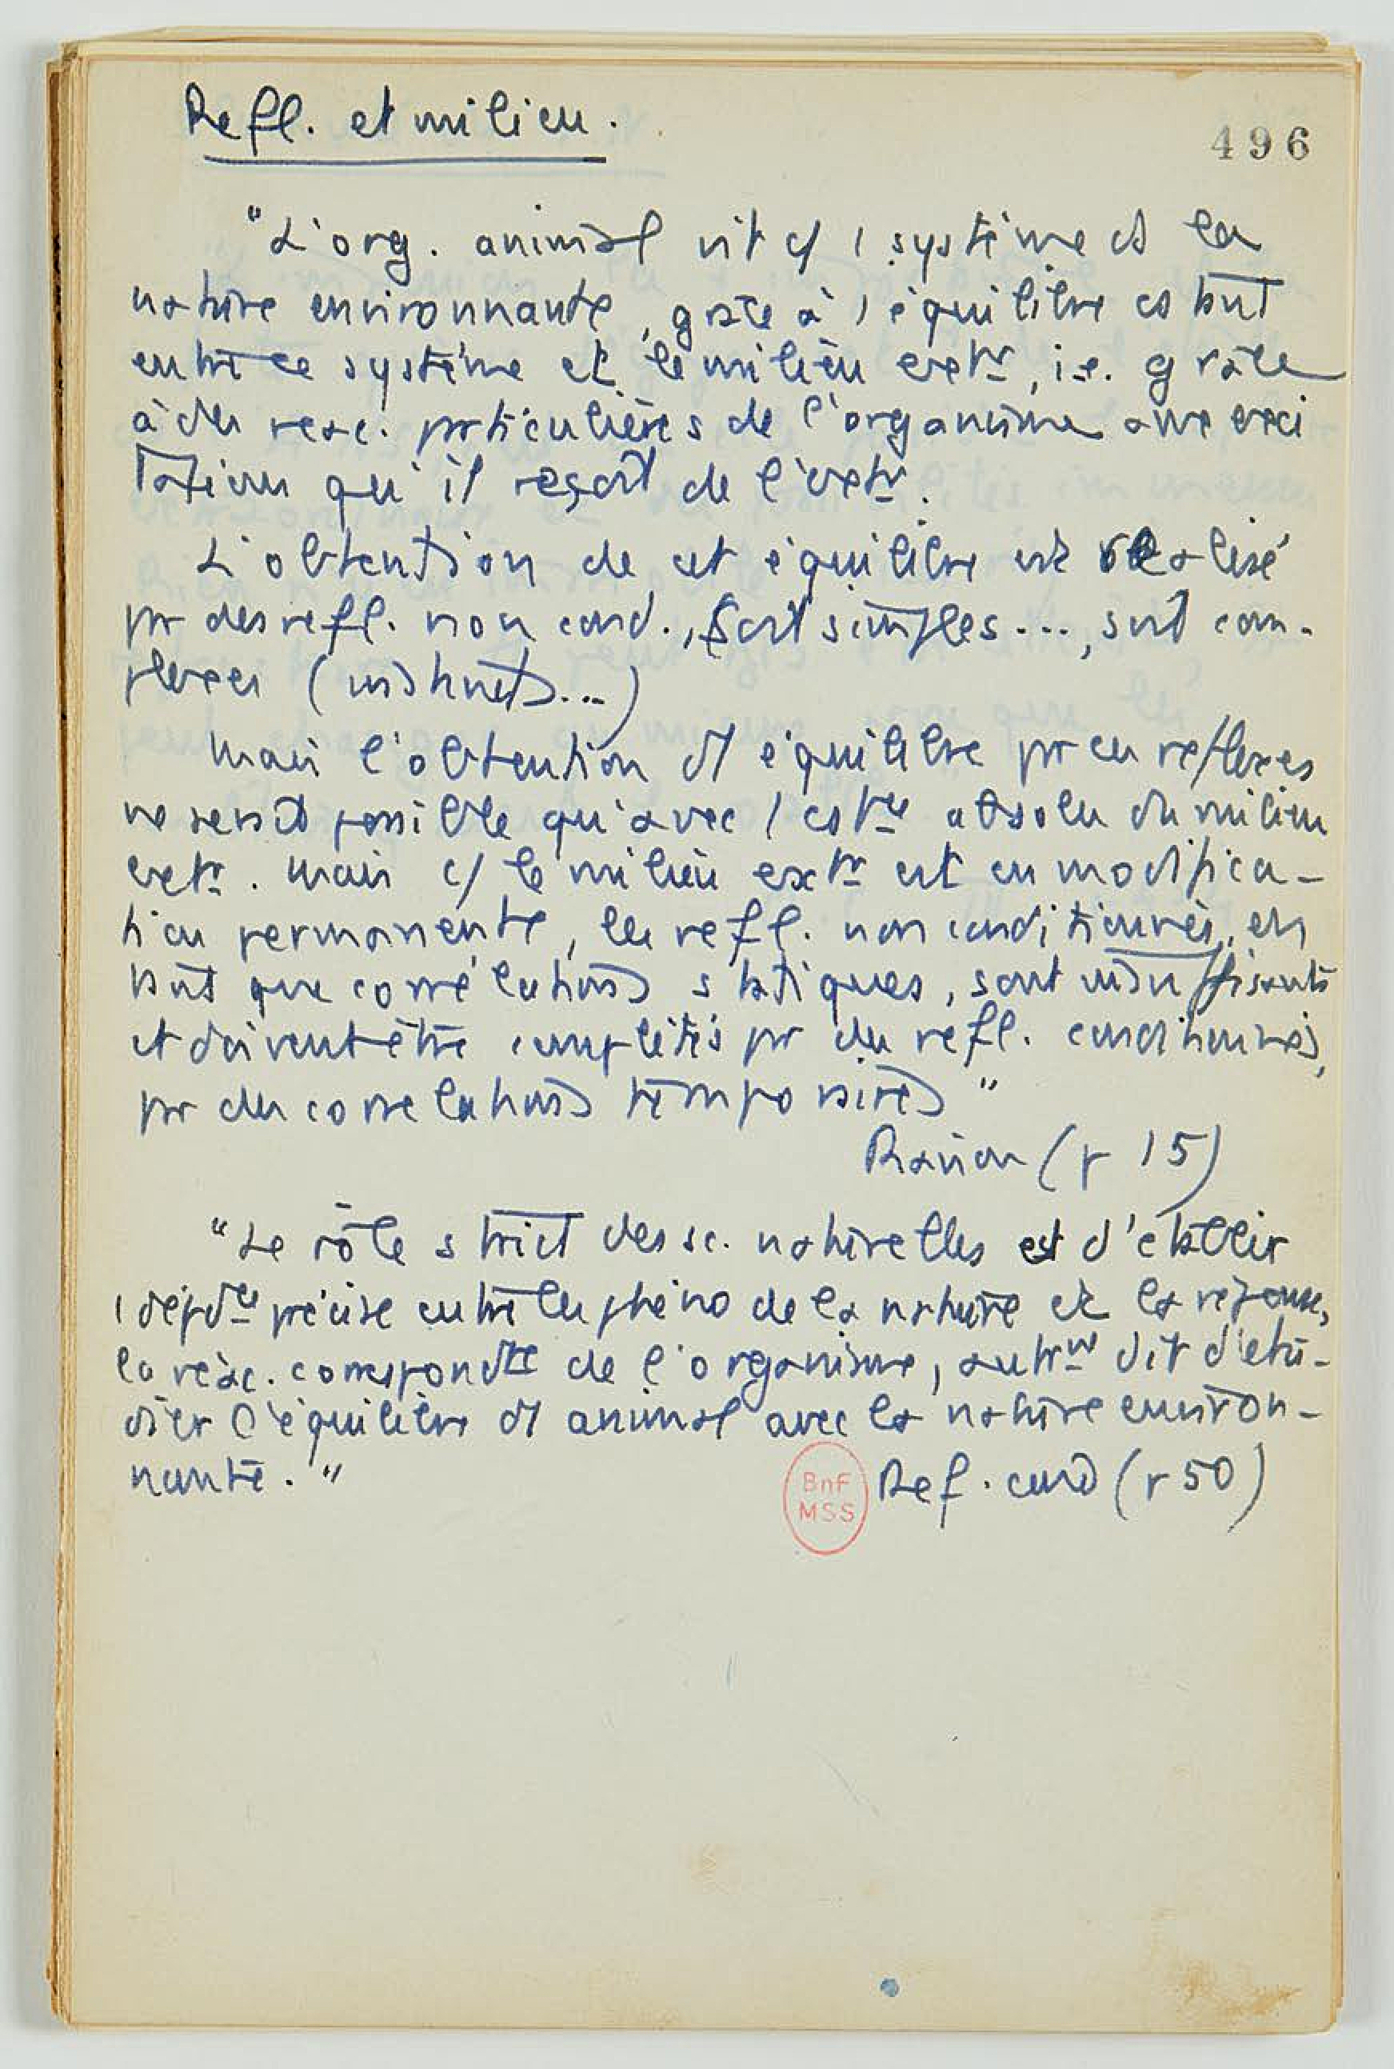 Refl. et milieu.
496
"L'org. animal vit c/ 1 système ds la
nature environnante, grâce à 1 équilibre cstant
entre ce système et le milieu extr, i.e. grâce
à des reac. particulières de l'organisme aux exci
tations qu'il reçoit de l'extr.
L'obtention de cet équilibre est réalisé
pr des refl. non cond., soit simples..., soit com-
plexes (instincts...)
Mais l'obtention d'1 équilibre pr ces reflexes
ne serait possible qu'avec 1 cstce absolue du milieu
extr. Mais c/ le milieu extr est en modifica-
tion permanente, les refl. non conditionnés, en
tant que corrélations statiques, sont insuffisants
et doivent être complétés pr des refl. conditionnés,
pr des correlations temporaires"
(p 15)
"Le rôle strict des sc. naturelles est d'établir
1 dépdce précise entre les phéno de la nature et la réponse,
la réac. correspondte de l'organisme, autrmt dit d'étu-
dier l'équilibre d'1 animal avec la nature environ-
nante."
Ref. cond (p 50)
BnF
MSS